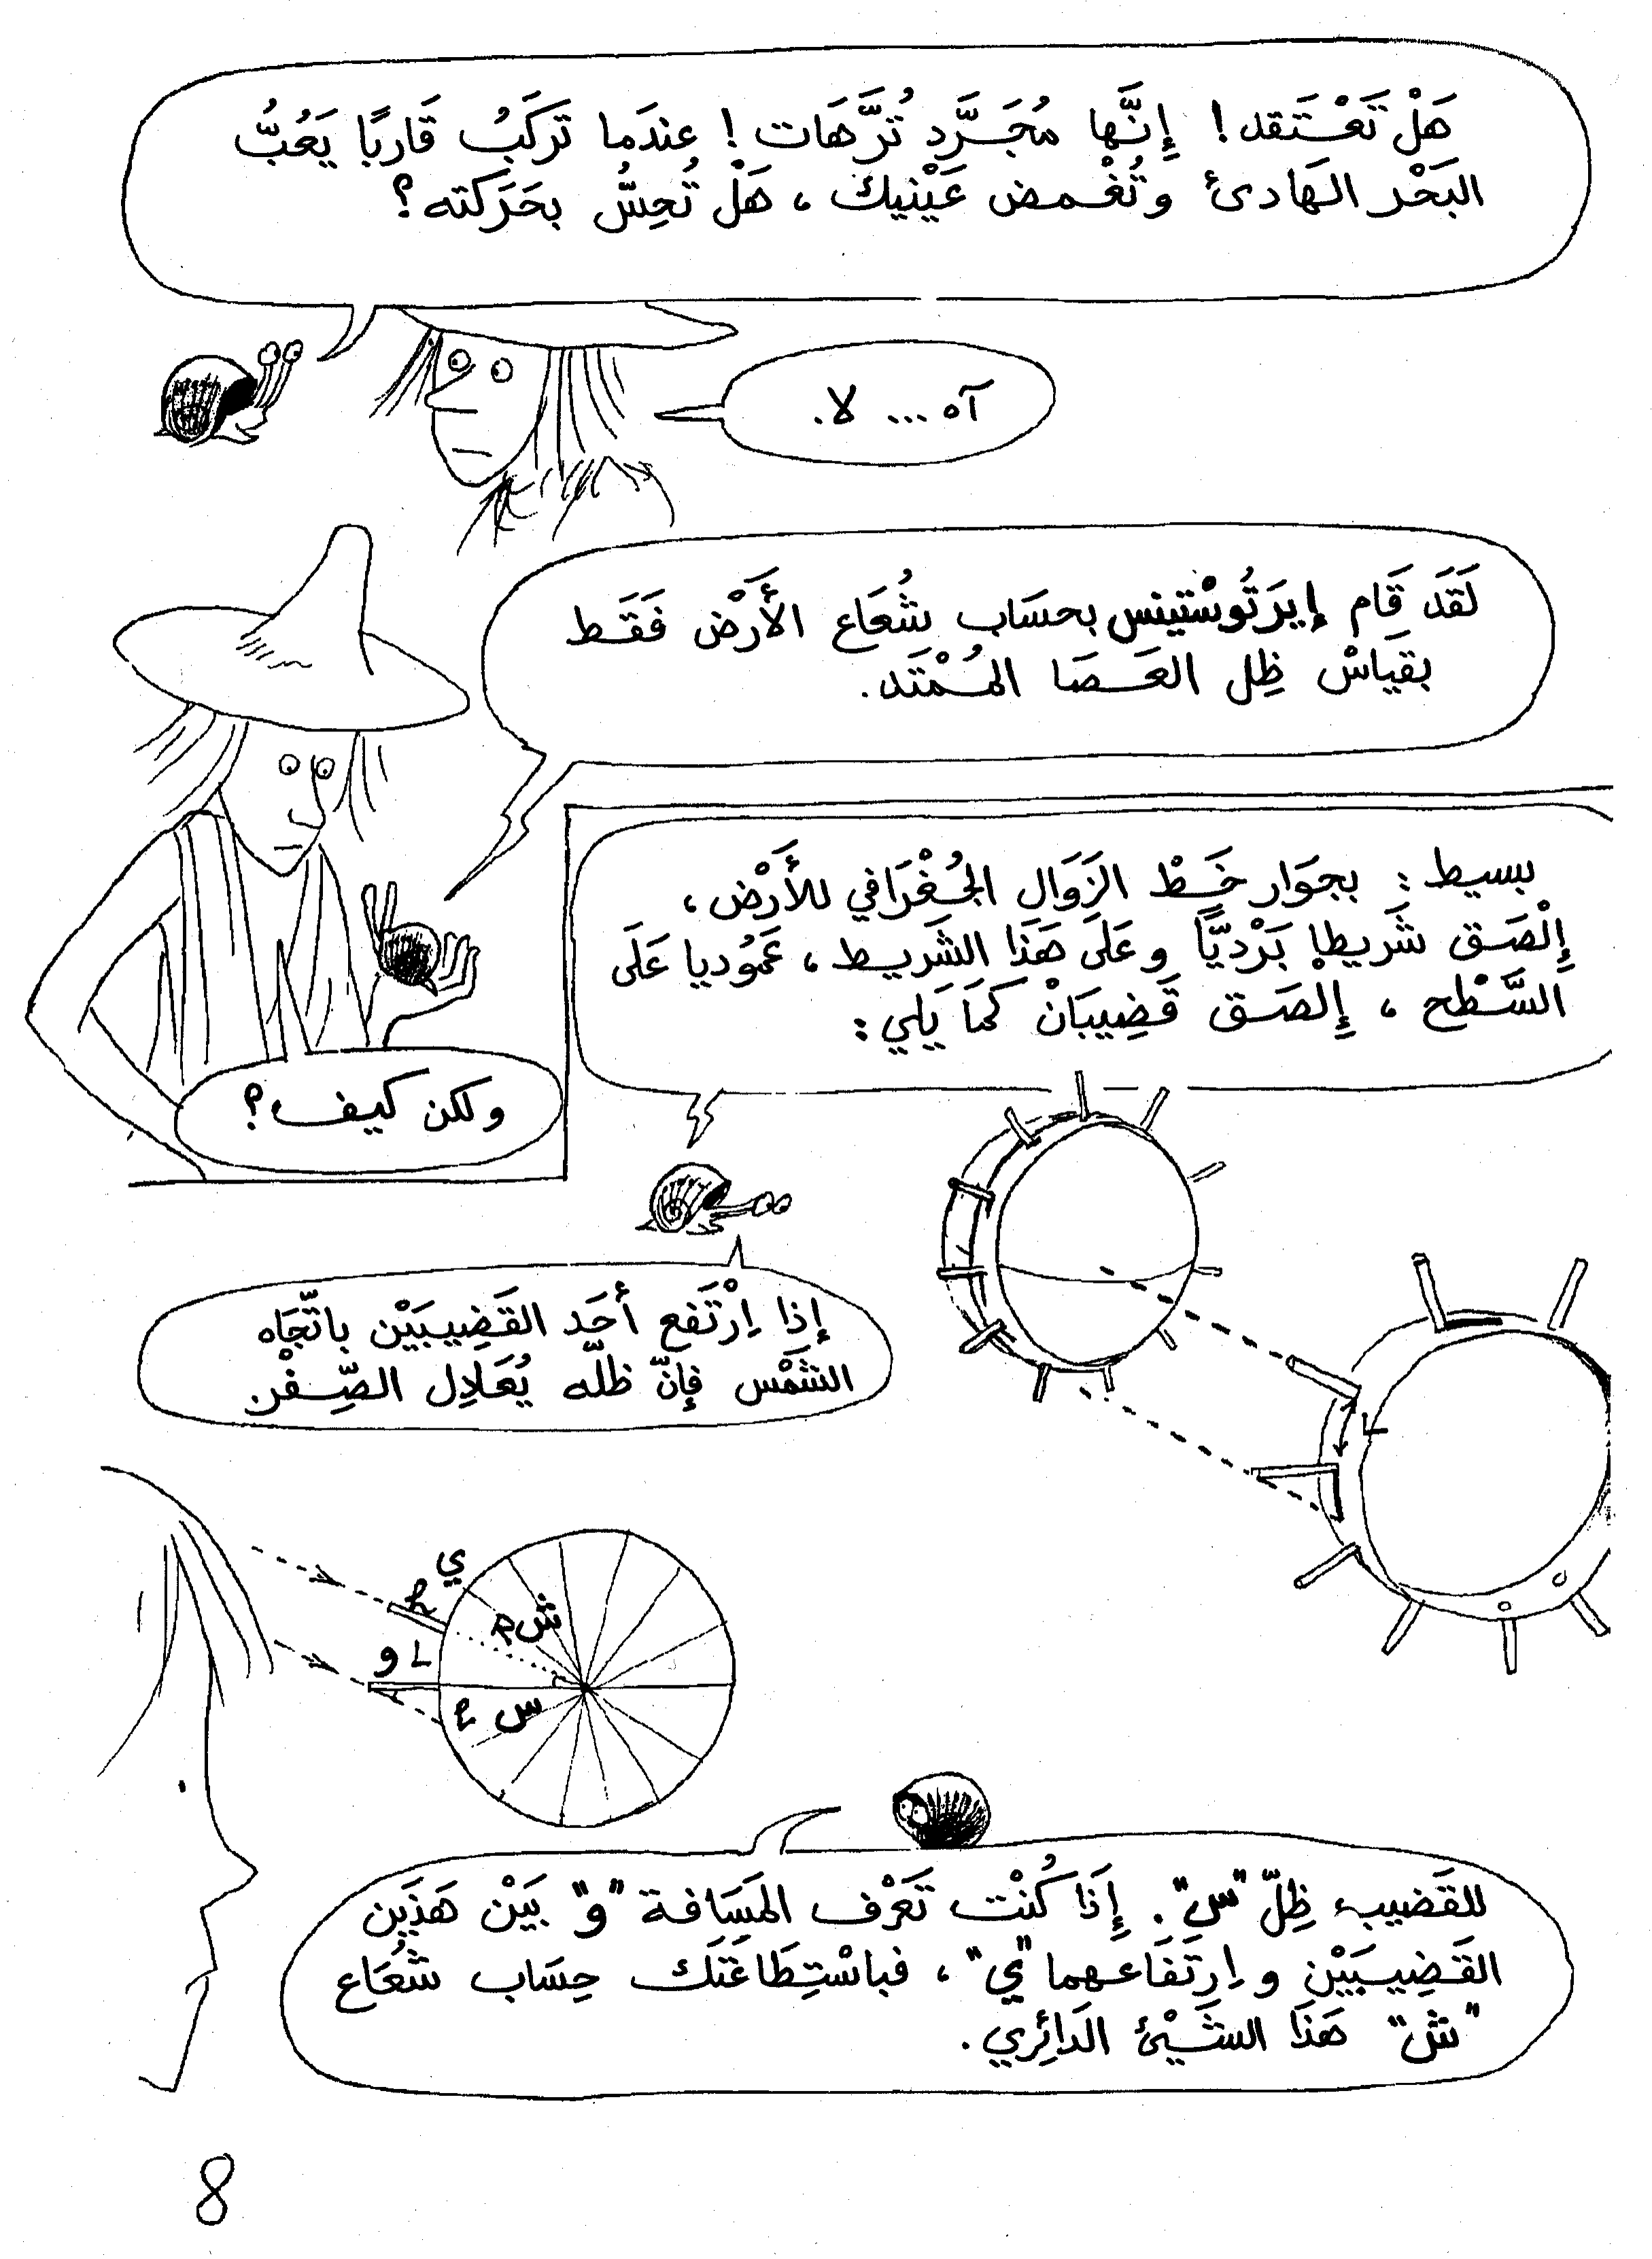 هَلْ تَعْتَقد! إِنَّها مُجَرَّد تُرَّهَات! عِندَما تَركَبُ قَاربًا يَعُبُّ
البَحْر الهَادئ وتُغْمض عَيْنيك، هَلْ تُحِسُّ بحَرَكته؟
آه... لا.
لَقَد قَام إيرَتُوسْتينس بحسَاب شُعَاع الأَرْض فَقَط
بقيَاسْ ظِل العَصَا المُمْتَد.
بسيط: بجوَار خَطْ الزَوَال الجُغْرَافي للأَرْض،
إِلْصَق شَريطا بَرْديًّا وعَلَى هَذَا الشَريط، عَمُوديا عَلَى
السَّطْح، إِلصَق قَضِيبَانْ كَمَا يَلي:
ولكن كيف؟
إذا اِرْتَفع أحَد القَضِيبَيْن باتّجَاه
الشَمْس فإنّ ظلّه يُعَادِل الصِّفْر.
ي
h
R ش
L و
س ع
L
للقَضيب ظِلّ "س". إِذَا كُنْت تَعْرف المَسَافة "و" بَيْن هَذَين
القَضِيبَيْن وإرتَفَاعهما "ي"، فباسْتِطَاعَتَك حِسَاب شُعَاع
"ش" هَذَا الشَيْئ الدَائِري.
8